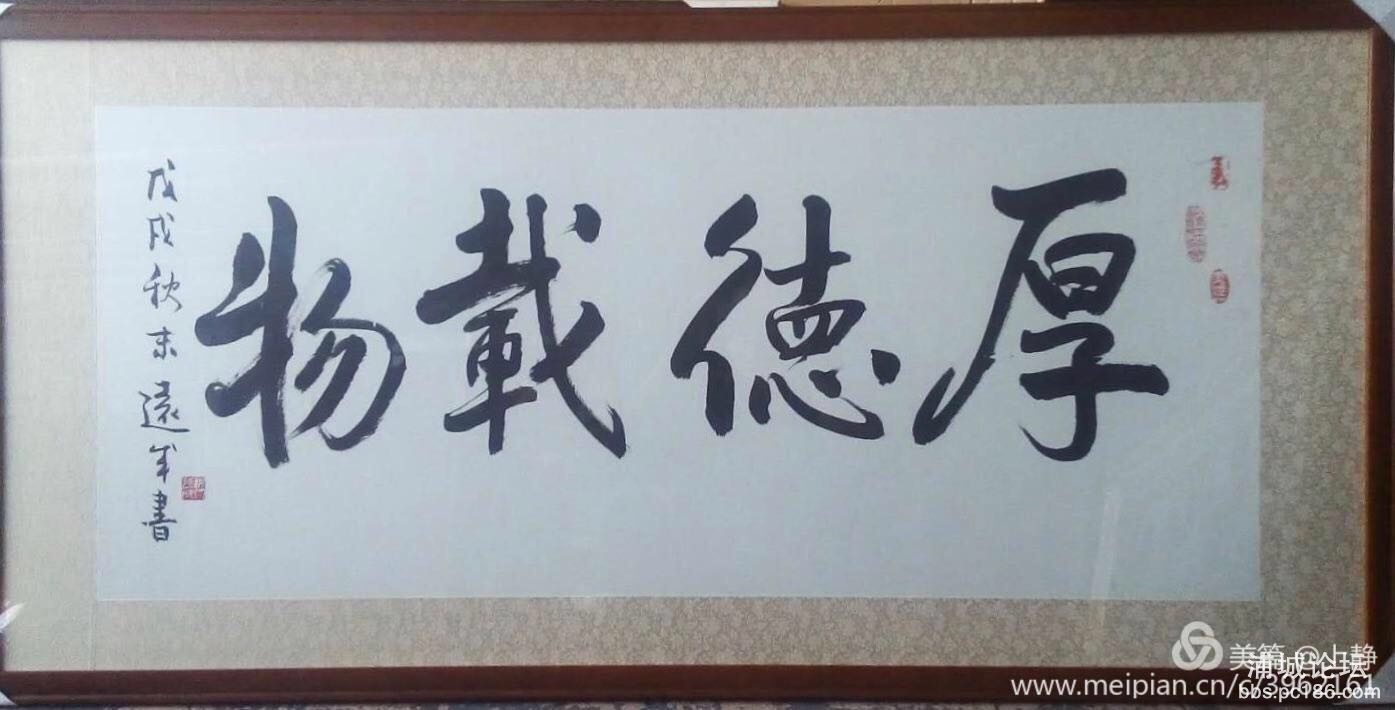 厚德載物
戊戌秋末遠年書
美篇 @上静
浦城论坛
www.meipian.cn/c/
bbs.pc186.com